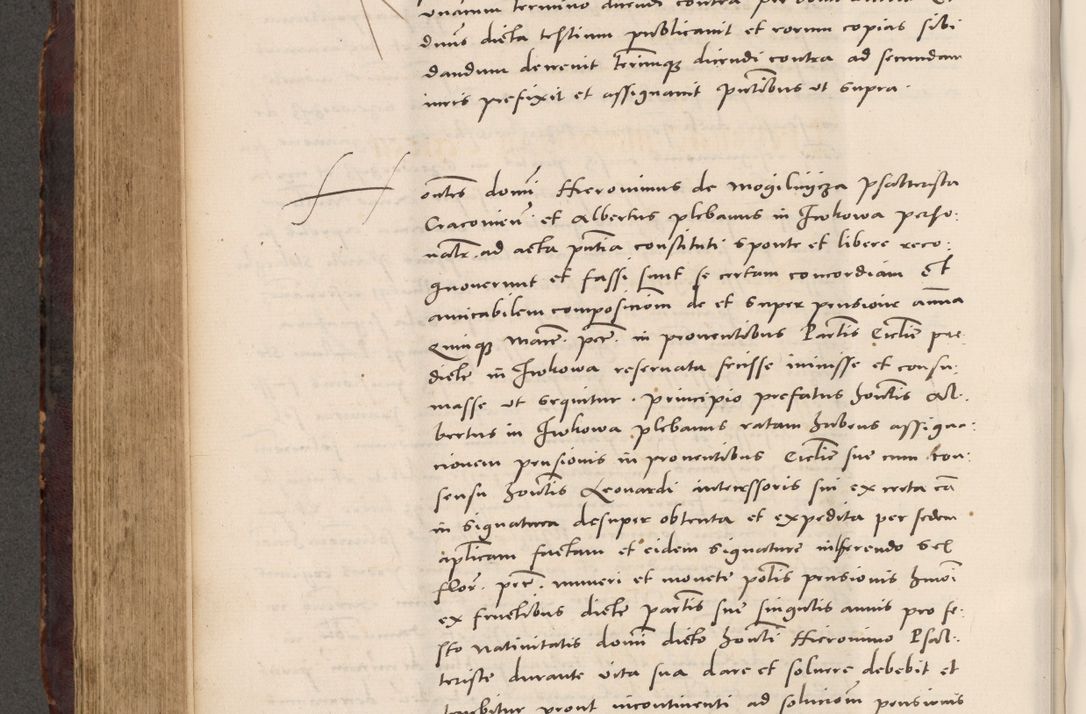 unarum termino dicendi contra
duus dicta testium publicavit et eorum copias sibi
dandum decrevit terminumq dicendi contra ad secundam
iuris prefixit et assignavit pntibus ut supra.
domi Hieronimus de Mogilnicza psalterista
Cracovien et Albertus plebanus in Irokowa perso:
nalr. ad acta pntia constituti sponte et libere reco:
gnoverunt et fassi sunt se certam concordiam et
amicabilem compositiom de et super pensione anna
quinqz marc. pec. in proventibus parlis Ecclie pre
dicte in Irokowa reservata fecisse inivisse et consu:
masse ut sequitur. principio prefatus honlis Al:
bertus in Irokowa plebanus ratam habens assigna:
cionem pensionis in proventibus Ecclie sue cum con:
sensu honlis Leonardi intercssoris sui ex certa
in signatura desuper obtenta et expedita per sedem
aplicam factam et eidem signature inherendo
flor. pec. numeri et monete polis pensionis hmoi
ex fructibus dicte parlis sue singulis annis pro fe:
sto nativitatis domi dicto honli Hieronimo Psal:
teriste durante vita sua dare et solvere debebit et
tenebitur prout incontinenti ad soluciom pensionis